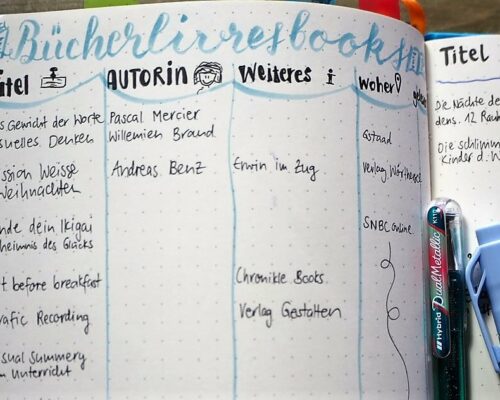 Bücherlivresbooks
Titel
itel AUTORIN Weiteres i Woher
s Gewicht der Worte Pascal Mercier
suelles Denken Willemien Brand Gstaad
ssion Weisse Andreas Benz Erwin im Zug Verlag
Weihnachten
nde dein Ikigai SNBC online
heimnis des Glücks
t before breakfast Chronikle Books
rafic Recording Verlag Gestalten
sual Summery
m Unterricht
Die Nächte de
dens. 12 Rauh
Die schlimm
Kinder d. W
Hybrid DualMetallic